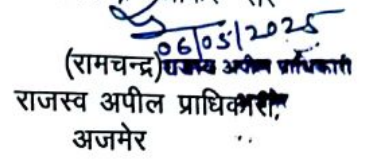 06/05/2025
(रामचन्द्र) राजस्व अपील प्राधिकारी
राजस्व अपील प्राधिकारी,
अजमेर